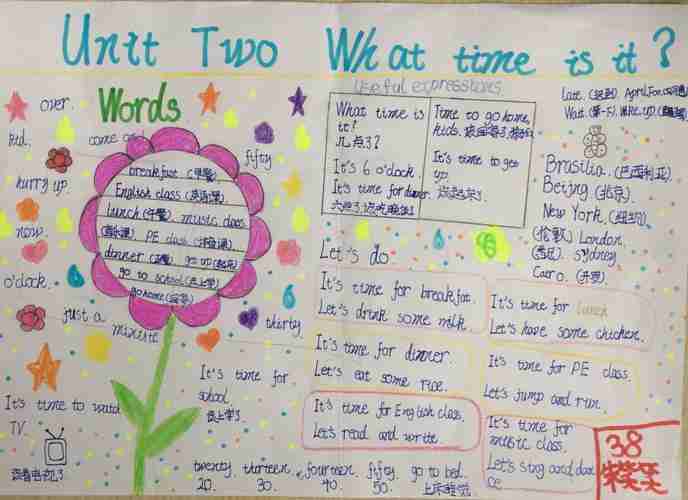 Unit Two What time is it?
Words
over.
come and
fifty
kid.
hurry up.
now.
o'clock.
just a
minute
thirty
breakfast (早餐)
English class (英语课)
lunch (午餐) music class
(音乐课) PE class (体育课)
dinner (晚餐) get up (起床)
go to school (去上学)
go home (回家)
It's time to watch
TV
该看电视了
It's time for
school
去上学了
twenty, thirteen, fourteen, fifty, go to bed.
20. 30. 40. 50. 上床睡觉
Useful expressions
What time is
it?
几点了?
It's 6 o'clock.
It's time for dinner.
六点了,该吃晚饭了
Time to go home,
kids.
It's time to get
up.
该起床了.
Late. (迟到) April Fool
Wait. (等一下), Wake up.
Brasilia. (巴西利亚)
Beijng (北京).
New York. (纽约).
(伦敦) London.
Sydney
Cairo. (开罗).
Let's do
It's time for breakfat.
Let's drink some milk.
It's time for lunch
Let's have some chicken.
It's tome for dinner.
Let's eat some rice.
It's time for PE class.
Let's jump and run.
It's time for English class.
Let's read and write.
It's time for
music class.
Let's sing aand dan
ce.
38